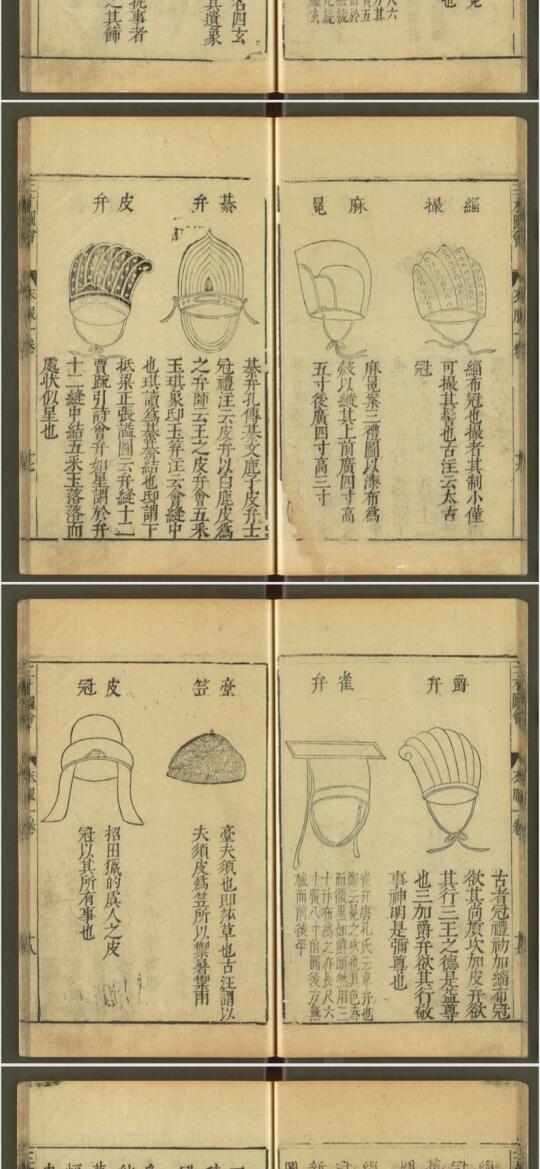 緇撮
緇布冠也撮者其制小僅
可撮其髻也古注云太古
冠
麻冕
麻冕案三禮圖以漆布為
殼以縰其上前廣四寸高
五寸後廣四寸高三寸
綦弁
綦弁孔傳綦文鹿子皮弁士
冠禮注云皮弁以白鹿皮為
之弁師云王之皮弁會五采
玉璂象邸玉笄注云會縫中
也璂讀為綦綦結也邸謂下
皮弁
柢梁正張謚圖云弁縫十二
賈疏引詩會弁如星謂於弁
十二縫中結五采玉落落而
處狀似星也
三才圖會
衣服一卷
爵弁
古者冠禮初加緇布冠
欲其尚質次加皮弁欲
其行三王之德是益尊
也三加爵弁欲其行敬
事神明是彌尊也
雀弁
雀弁唐孔氏云雀弁也
鄭云冕之次也其色赤
而微黑如爵頭然用三
十升布為之亦長尺六
寸廣八寸前圓後方無
旒而前後平
臺笠
臺夫須也即莎草也古注謂以
夫須皮為笠所以禦暑禦雨
皮冠
招田獵的虞人之皮
冠以其所有事也
三才圖會
衣服一卷
十八